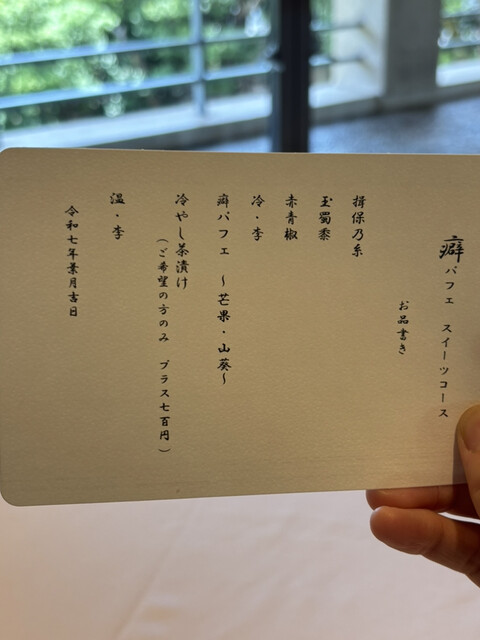 癖パフェ スイーツコース
お品書き
揖保乃糸
玉蜀黍
赤青椒
冷・李
癖パフェ 〜芒果・山葵〜
冷やし茶漬け
（ご希望の方のみ プラス七百円）
温・李
令和七年葉月吉日